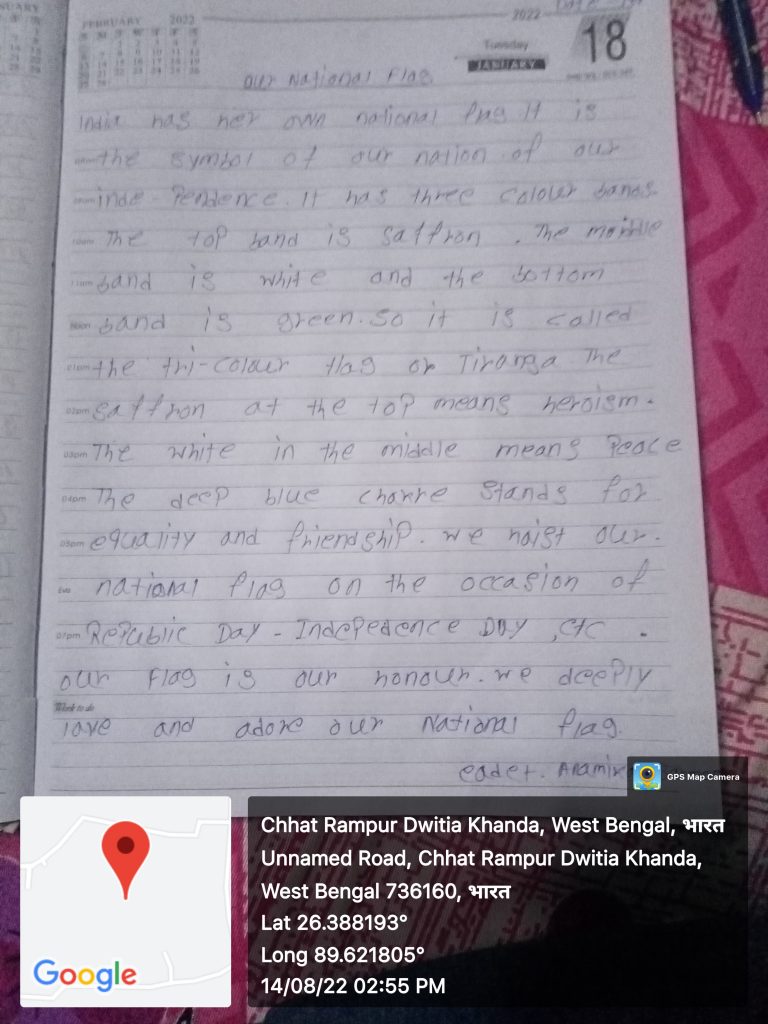 FEBRUARY 2022
2022
Tuesday
JANUARY
18
our National Flag
India has her own national flag It is
the symbol of our nation of our
inde-Pendence. It has three colour bands
10am The top band is saffron. The middle
11am band is white and the bottom
Noon band is green. So it is called
01pm the tri-colour flag or Tiranga The
02pm saffron at the top means heroism.
03pm The white in the middle means Peace
04pm The deep blue chakre stands for
05pm equality and friendship. we hoist our.
Eve national flag on the occasion of
07pm Republic Day - Indepedence Day, etc.
our Flag is our honour. we deeply
Work to do
love and adore our National flag.
cadet.
GPS Map Camera
Chhat Rampur Dwitia Khanda, West Bengal, भारत
Unnamed Road, Chhat Rampur Dwitia Khanda,
West Bengal 736160, भारत
Lat 26.388193°
Long 89.621805°
14/08/22 02:55 PM
Google